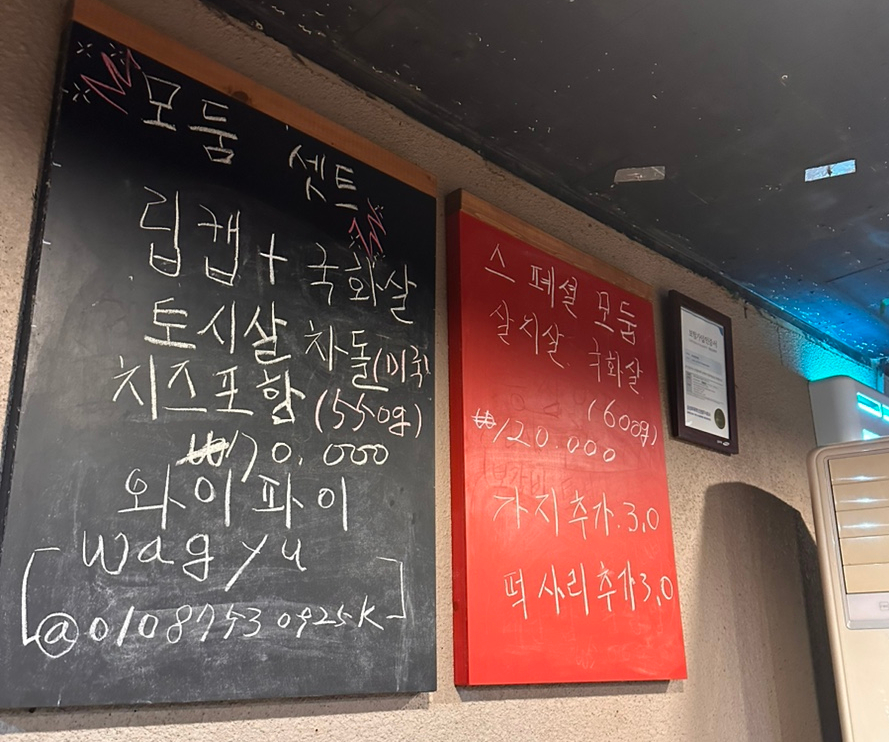 모둠 셋트
립캡 + 국화살
토시살 차돌(미국)
치즈포함 (550g)
₩70,000
와이파이
wagyu
@01087530925k
스페셜 모둠
살치살 국화살
(600g)
₩120.000
가지추가.3,0
떡사리추가3,0